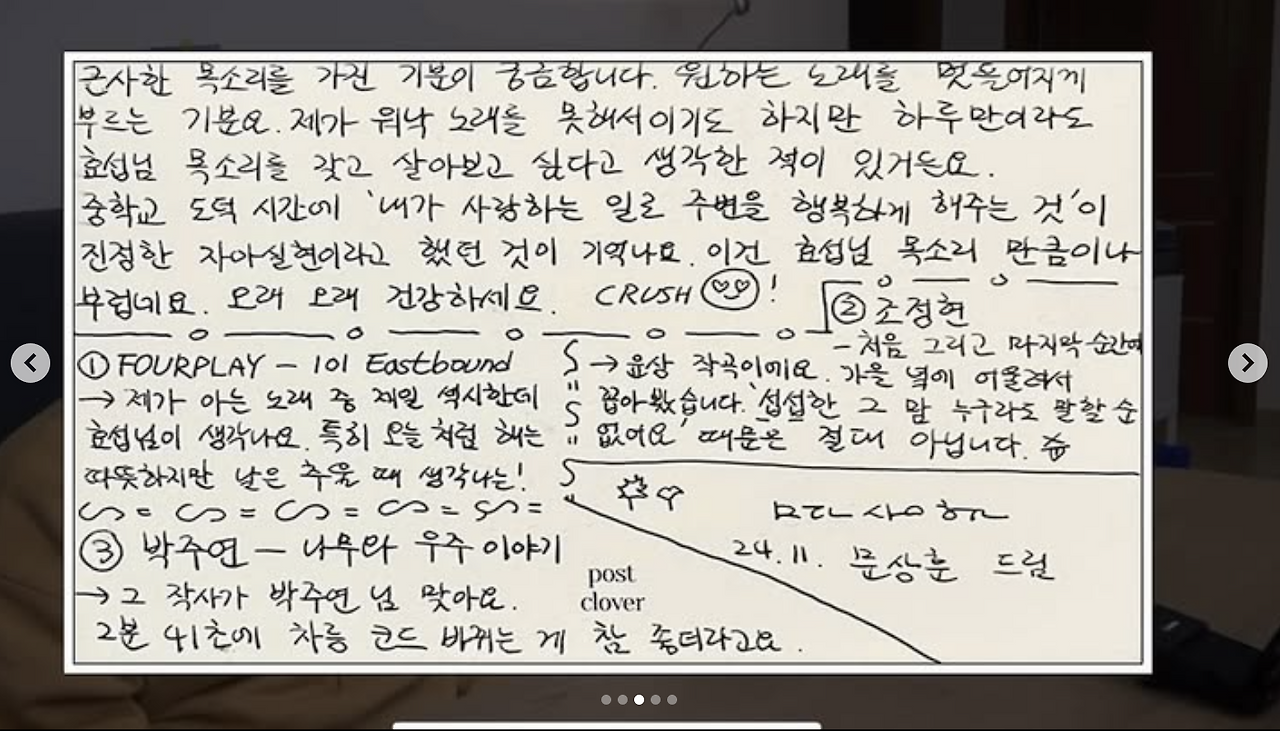 근사한 목소리를 가진 기분이 궁금합니다. 원하는 노래를 멋들어지게
부르는 기분요. 제가 워낙 노래를 못해서이기도 하지만 하루만이라도
효섭님 목소리를 갖고 살아보고 싶다고 생각한 적이 있거든요.
중학교 도덕 시간에 '내가 사랑하는 일로 주변을 행복하게 해주는 것'이
진정한 자아실현이라고 했던 것이 기억나요. 이건 효섭님 목소리 만큼이나
부럽네요. 오래 오래 건강하세요. CRUSH !
① FOURPLAY – 101 Eastbound
→ 제가 아는 노래 중 제일 섹시한데
효섭님이 생각나요. 특히 오늘처럼 해는
따뜻하지만 날은 추울 때 생각나는!
② 조정현
- 처음 그리고 마지막 순간에
→ 윤상 작곡이에요. 가을 녘에 어울려서
꼽아봤습니다. '섭섭한 그 맘 누구라도 말할 순
없어요' 때문은 절대 아닙니다.
③ 박주연 – 나무와 우주 이야기
→ 그 작사가 박주연 님 맞아요.
2분 41초에 차릉 코드 바뀌는 게 참 좋더라고요.
24.11. 문상훈 드림
post
clover